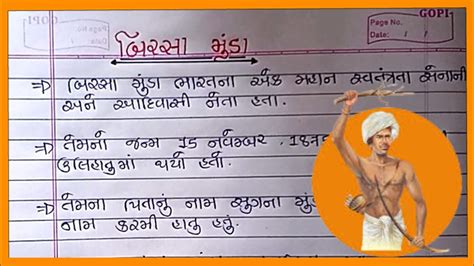 GOPI
Page No.
Date: / /
બિરસા મુંડા
⇒ બિરસા મુંડા ભારતના એક મહાન સ્વતંત્રતા સેનાની
અને આદિવાસી નેતા હતા.
⇒ તેમનો જન્મ 15 નવેમ્બર, 18
ઉલિહાતુમાં થયો હતો.
⇒ તેમના પિતાનું નામ સુગના મુંડ
નામ કરમી હાતુ હતું.